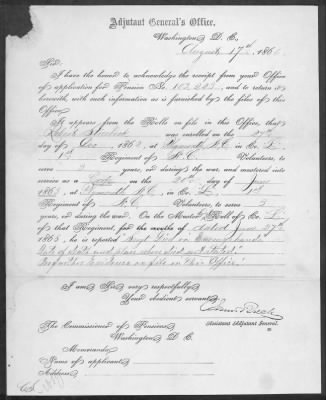 Adjutant General's Office,
Washington D. C.,
August 17th 186
Sir:
I have the honor to acknowledge the receipt from your Office
of application for Pension No. 102,223, and to return it
herewith, with such information as is furnished by the files of this
Office.
It appears from the Rolls on file in this Office, that
was enrolled on the 27th
day of Dec 1862, at Plymouth N.C. in Co. L,
1st Regiment of N.C. Volunteers, to
serve 3 years, or during the war, and mustered into
service as a on the day of June
1863, at Plymouth N.C., in Co. L, 1st
Regiment of N.C. Volunteers, to serve 3
years, or during the war. On the Muster Roll of Co. L
of that Regiment, for the months of dated June 27th
1865, he is reported
Date of death and place when died not stated.
No further evidence on file in this Office.
I am Sir, very respectfully,
Your obedient servant,
Assistant Adjutant General.
The Commissioner of Pensions
Washington D. C.
Memoranda:
Name of applicant,
Address,